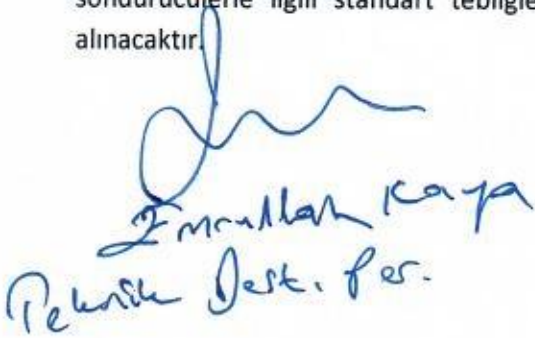 söndürücülerle ilgili standart tebliğle
alınacaktır.
Emrullah Kaya
Teknik Dest. Per.